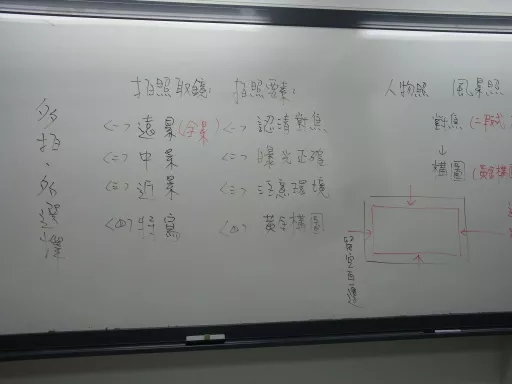 多拍、多選擇
拍照取鏡: 拍照要素: 人物照 風景照
<一> 遠景(全景) <一> 認清對焦 對焦
<二> 中景 <二> 曝光正確 ↓
<三> 近景 <三> 注意環境 構圖(黃金構圖
<四> 特寫 <四> 黃金構圖
留空白邊